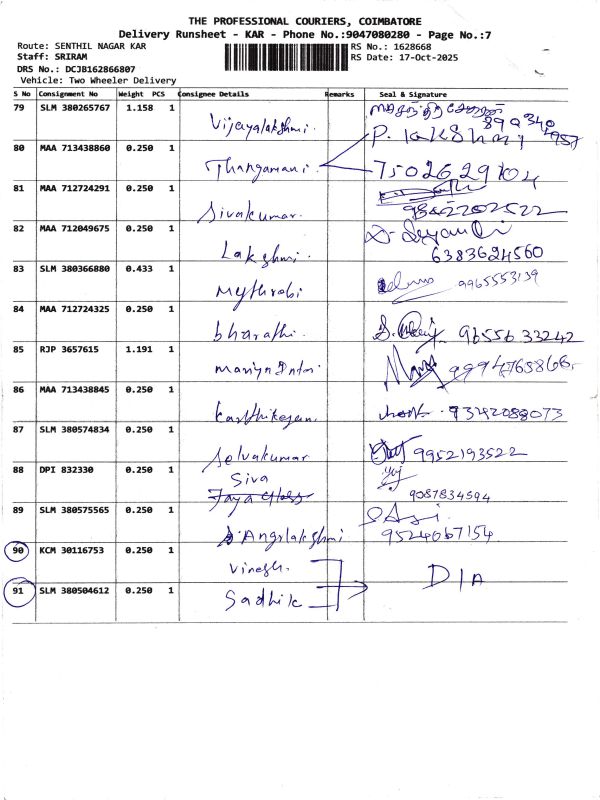 THE PROFESSIONAL COURIERS, COIMBATORE
Delivery Runsheet - KAR - Phone No.:9047080280 - Page No.:7
Route: SENTHIL NAGAR KAR
RS No.: 1628668
Staff: SRIRAM
RS Date: 17-Oct-2025
DRS No.: DCJB162866807
Vehicle: Two Wheeler Delivery
S No Consignment No Weight PCS Consignee Details Remarks Seal & Signature
79 SLM 380265767 1.158 1 Vijayalakshmi.
80 MAA 713438860 0.250 1 Thangamani. 7502629104
81 MAA 712724291 0.250 1 Sivakumar.
82 MAA 712049675 0.250 1 Lakshmi. 6383624560
83 SLM 380366880 0.433 1 Mythrobi 9965553139
84 MAA 712724325 0.250 1 bharathi. 9655633242
85 RJP 3657615 1.191 1
86 MAA 713438845 0.250 1 karthikeyan. 9342088073
87 SLM 380574834 0.250 1 Selvakumar 9952193522
88 DPI 832330 0.250 1 Siva 9087834594
89 SLM 380575565 0.250 1 9524067154
90 KCM 30116753 0.250 1 Vinesh.
91 SLM 380504612 0.250 1 Sadhik D/A